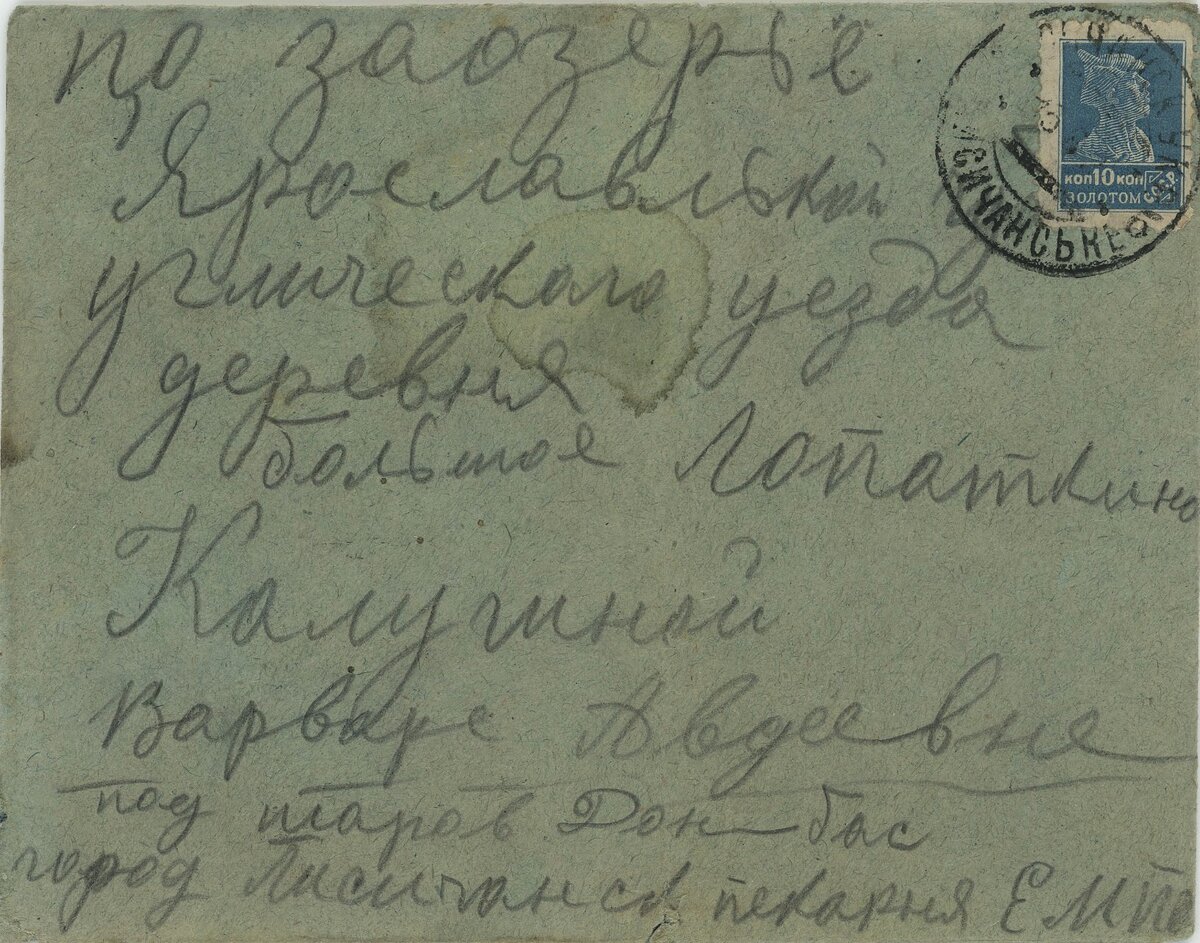 по заозерье
Ярославской г
угличсского уезда
деревня
большое Лопаткино
Калугиной
Варваре Авдеевне
под Дон-бас
город Лисичанск пекарня Е М П
коп 10 коп
ЗОЛОТОМ
ЛИСИЧАНСЬКЕ